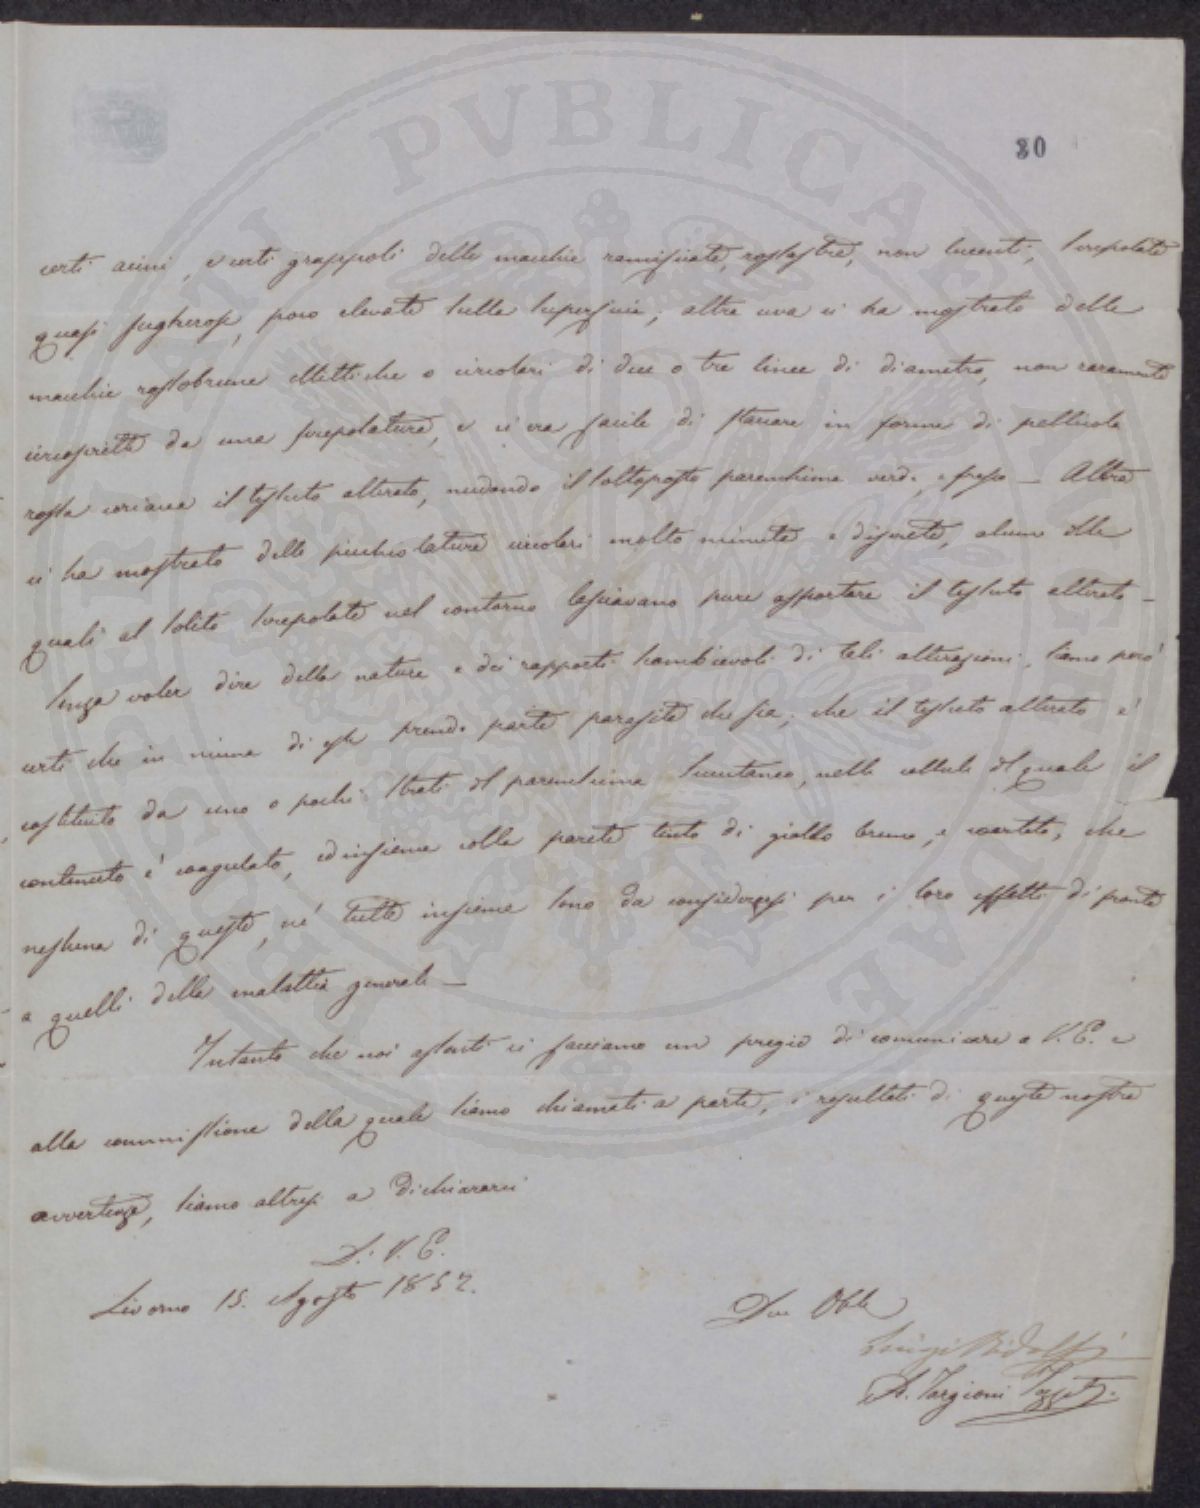 30
certi acini, e certi grappoli delle macchie ramificate, rossastre, non lucenti, screpolate
quasi sugherose, poco elevate sulla superficie; altra uva ci ha mostrato delle
macchie rossobrune ellittiche o circolari di due o tre linee di diametro, non raramente
circoscritte da una screpolatura, e ci era facile di staccare in forma di pellicola
rossa coriacea il tessuto alterato, nudando il sottoposto parenchima verde, e fresco — Altra
ci ha mostrato delle picchiolature circolari molto minute e discrete, alcune delle
quali al solito screpolate nel contorno lasciavano pure asportare il tessuto alterato —
Senza voler dire della natura e dei rapporti scambievoli di tali alterazioni, siamo però
certi che in niuna di esse prende parte parasite che sia; che il tessuto alterato è
costituito da uno o pochi strati del parenchima succutaneo, nelle cellule del quale il
contenuto è coagulato, ed insieme colla parete tinto di giallo bruno, e scartato, che
nessuna di queste, nè tutte insieme sono da considerarsi per i loro effetti di fronte
a quelli della malattia generale —
Intanto che noi assenti ci facciamo un pregio di comunicare a V. E. e
alla commissione della quale siamo chiamati a parte, i resultati di queste nostre
avvertenze, siamo altresì a dichiararci
D. V. E.
Livorno 15. Agosto 1852.
Dev Obbl
Luigi Ridolfi
A. Targioni Tozzetti
PVBLICAE